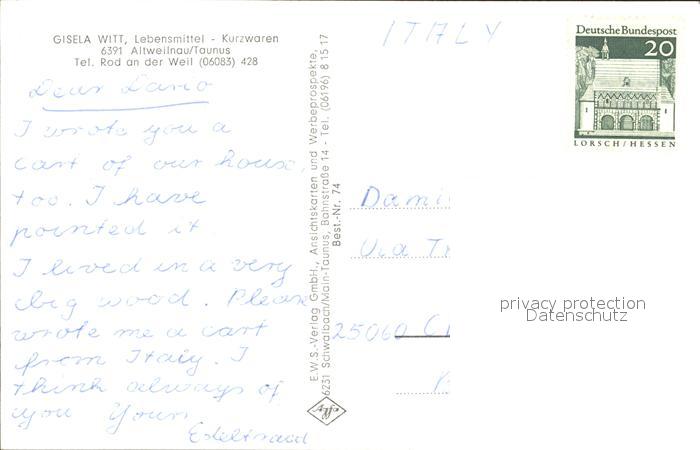 GISELA WITT, Lebensmittel - Kurzwaren
6391 Altweilnau/Taunus
Tel. Rod an der Weil (06083) 428
Dear Dario
I wrote you a
cart of our house,
too. I have
pointed it.
I lived in a very
big wood. Please
wrote me a cart
from Italy. I
think always of
you Yours
Edeltraud
E.W.S.-Verlag GmbH., Ansichtskarten und Werbeprospekte,
6231 Schwalbach/Main-Taunus, Bahnstraße 14 - Tel. (06196) 8 15 17
Best.-Nr. 74
Agfa
ITALY
Deutsche Bundespost
20
LORSCH/HESSEN
Dami
Via Tr
25060 C
privacy protection
Datenschutz